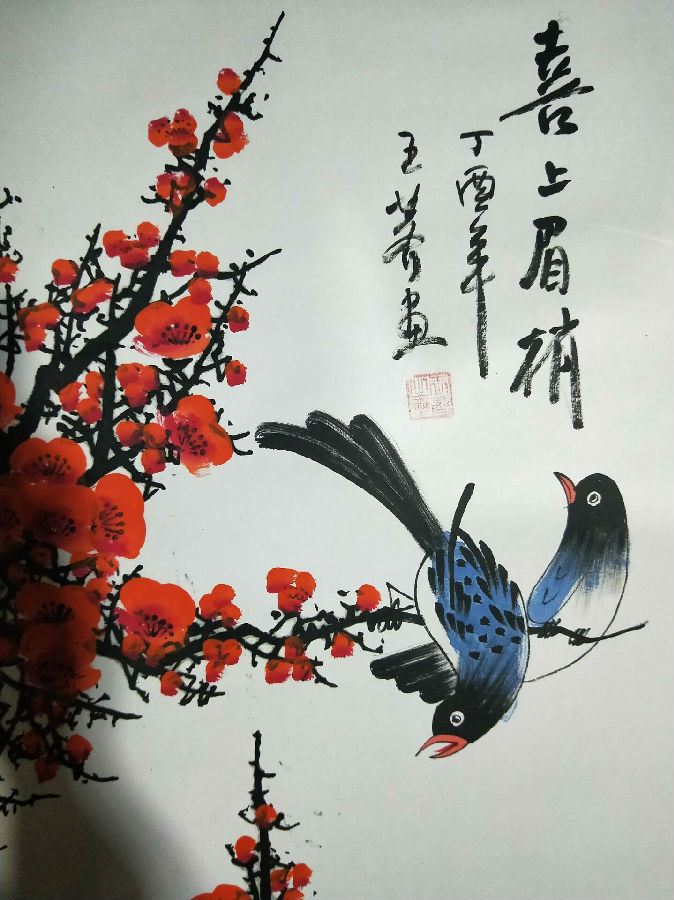 喜上眉梢
丁酉年
王芳画